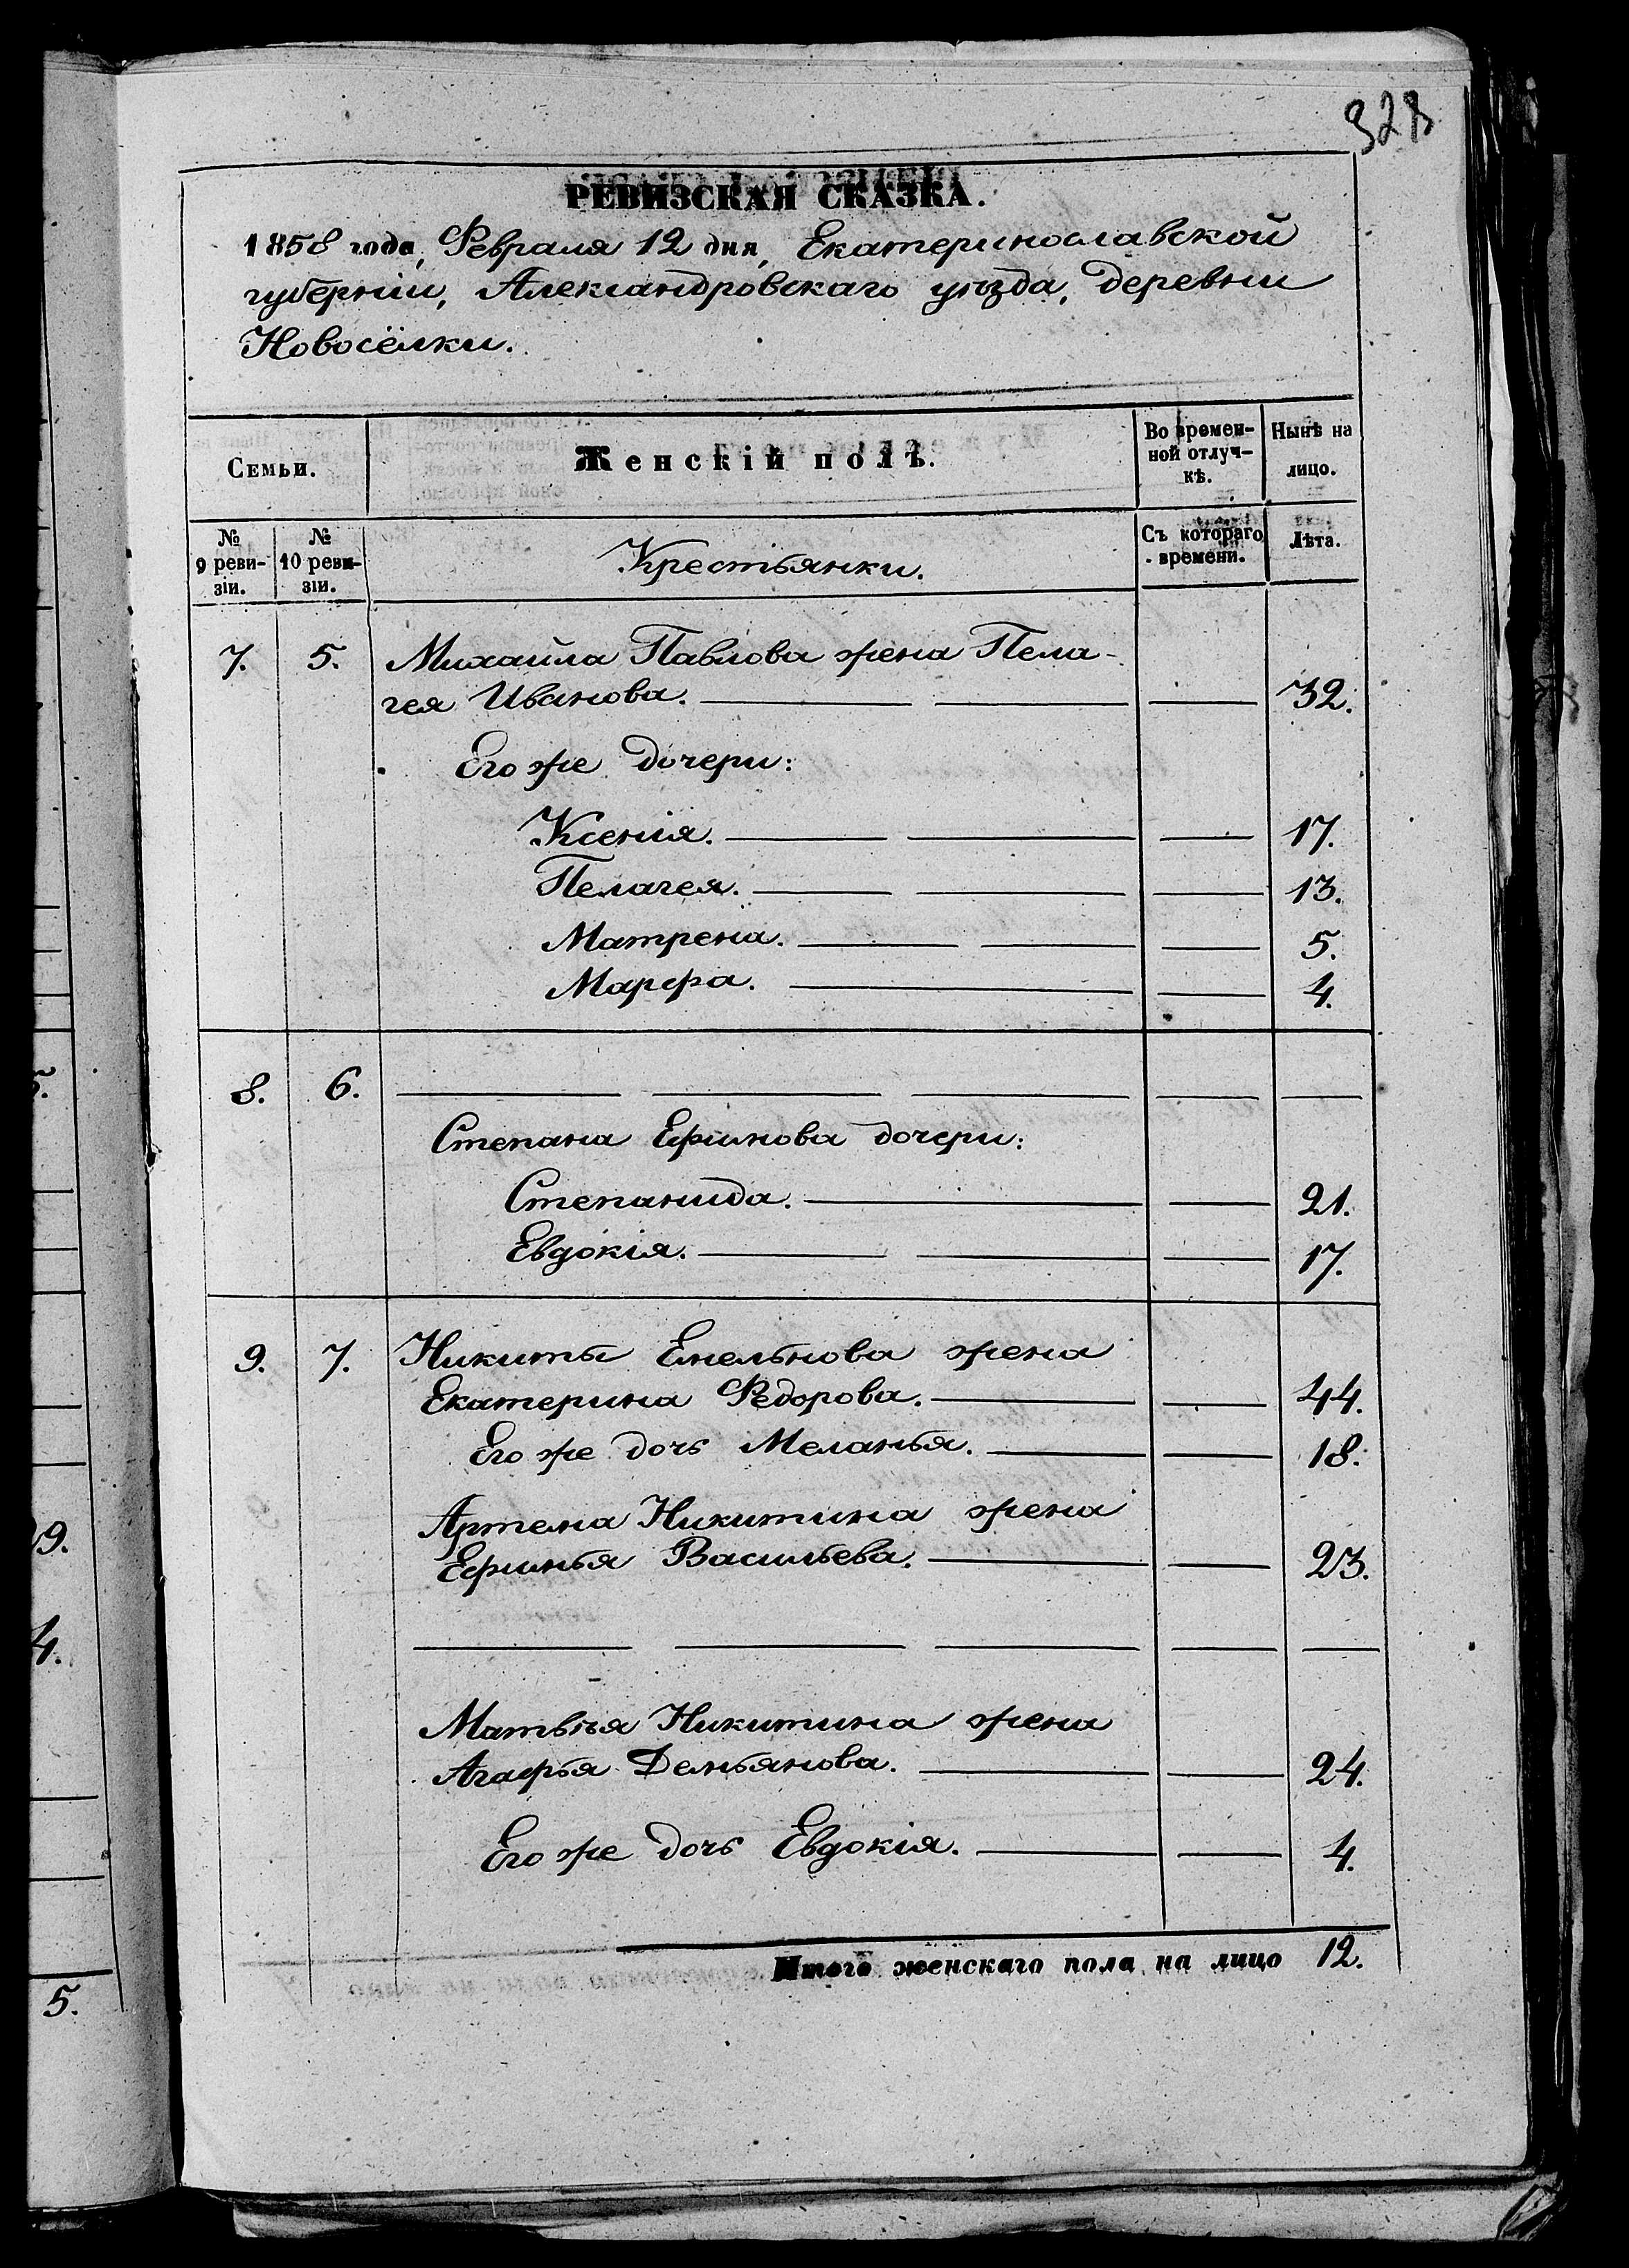 328
РЕВИЗСКАЯ СКАЗКА.
1858 года, Февраля 12 дня, Екатеринославской
губерніи, Александровскаго уѣзда, деревни
Новосёлки.
Семьи.
Женскій полъ.
Во времен-
ной отлуч-
кѣ.
Нынѣ на
лицо.
№
9 реви-
зіи.
№
10 реви-
зіи.
Крестьянки.
Съ котораго
времени.
Лѣта.
7. 5. Михайла Павлова жена Пела-
гея Иванова. 32.
Его же дочери:
Ксенія. 17.
Пелагея. 13.
Матрена. 5.
Марфа. 4.
8. 6.
Степана Ефимова дочери:
Степанида. 21.
Евдокія. 17.
9. 7. Никиты Емельнова жена
Екатерина Федорова. 44.
Его же дочь Меланья. 18.
Артема Никитина жена
Ефимья Васильева. 23.
Матвѣя Никитина жена
Агафья Демьянова. 24.
Его же дочь Евдокія. 4.
Итого женскаго пола на лицо 12.
5.
9.
4.
5.